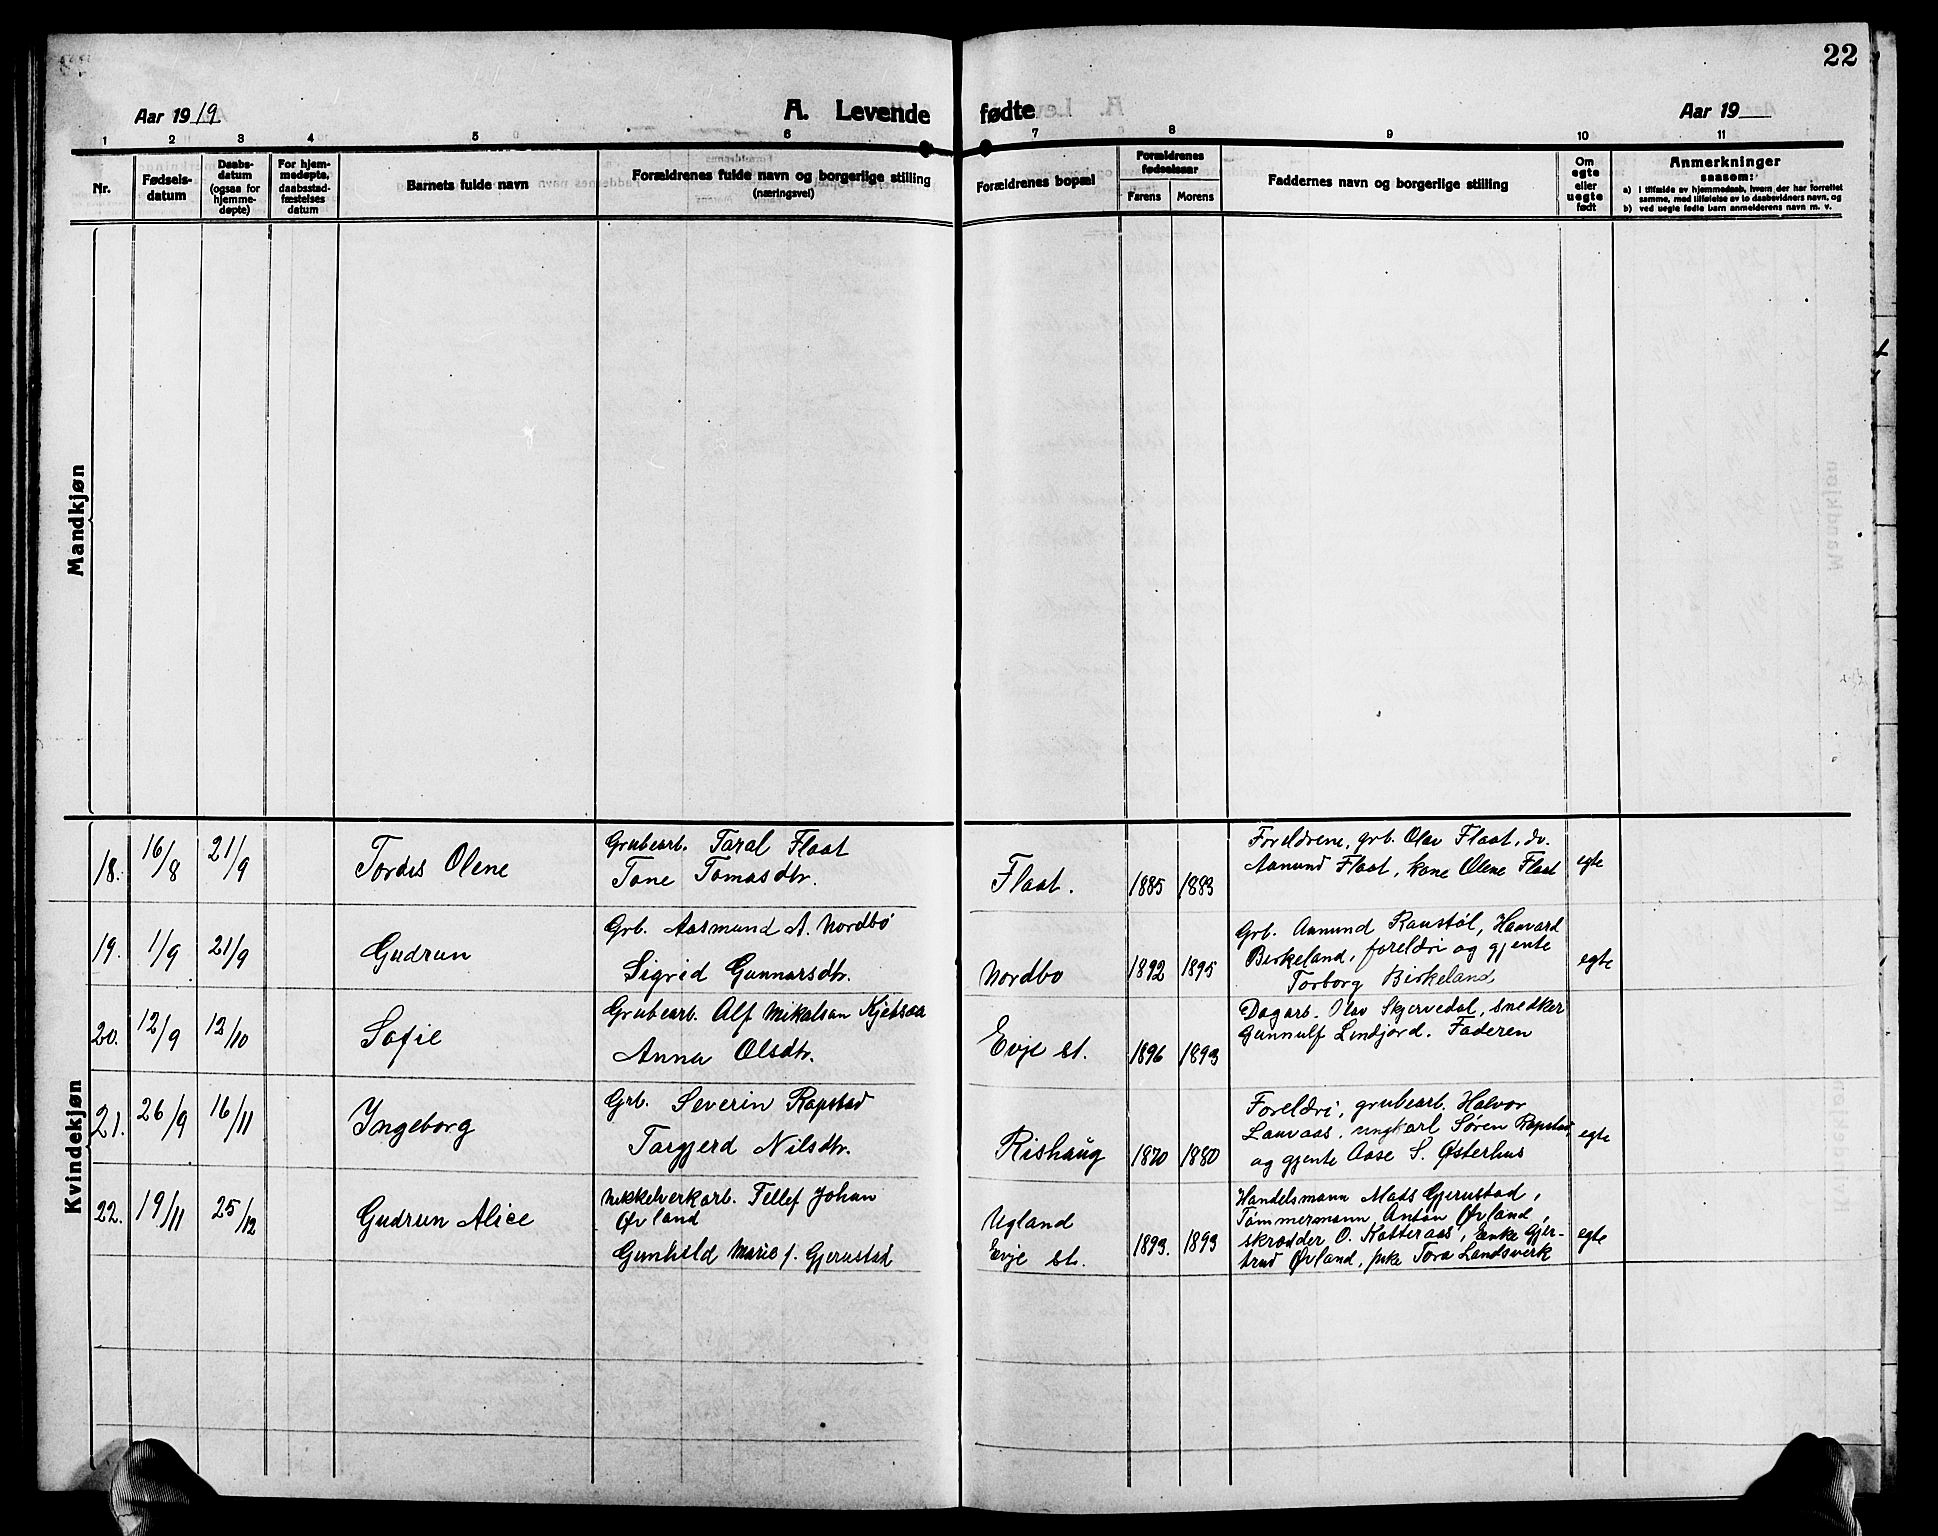 22
Aar 1919
A. Levende
fødte
Aar 19
1 2 3 4 5 6 7 8 9 10 11
Nr.
Fødsels-
datum
Daabs-
datum
(ogsaa for
hjemme-
døpte)
For hjem-
medøpte,
daabsstad-
fæstelses
datum
Barnets fulde navn
Forældrenes fulde navn og borgerlige stilling
(næringsvei)
Forældrenes bopæl
Forældrenes
fødselsaar
Farens
Morens
Faddernes navn og borgerlige stilling
Om
egte
eller
uegte
født
Anmerkninger
saasom:
a) i tilfælde av hjemmedaab, hvem der har forrettet
samme, med tilføielse av to daabsvidners navn, og
b) ved uegte fødte barn anmelderens navn m. v.
Mandkjøn
Kvindekjøn
18. 16/8 21/9
Tordis Olene
Grubearb. Taral Flaat
Tone Tomasdtr.
Flaat.
1885 1883
Foreldrene, grb. Olav Flaat, do.
Aanund Flaat, kone Olene Flaat
egte
19. 1/9 21/9
Gudrun
Grb. Aasmund A. Nordbø
Sigrid Gunnarsdtr.
Nordbo
1892 1895
Grb. Aanund Raustøl, Haavard
Birkeland, foreldri og gjente
Torborg Birkeland,
egte
20. 12/9 12/10
Sofie
Grubearb. Alf Mikalsen Kjetsaa
Anna Olsdtr.
Evje st.
1896 1893
Dagarb. Olav Skjervedal, smedker
Gunnulf Lindjord. Faderen
21. 26/9 16/11
Ingeborg
Grb. Severin Rapstad
Targjerd Nilsdtr.
Rishaug
1870 1880
Foreldri, grubearb. Halvor
Lauvaas, ungkarl Søren Rapstad
og gjente Aase S. Østerhus
egte
22. 19/11 25/12
Gudrun Alice
Nikkelverkarb. Tellef Johan
Øvland
Gunhild Marie f. Gjerustad
Ugland
Evje st.
1893. 1893
Handelsmann Mads Gjerustad,
Tømmermann Anton Øvland,
skrodder O. Katteraas, Enke Gjer-
trud Øvland, pike Tora Landsverk
egte